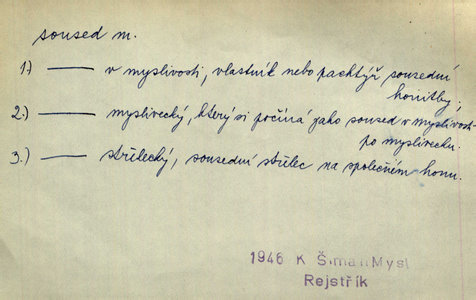 soused m.
1.) ——— v myslivosti, vlastník nebo pachtýř sousední
honitby;
2.) ——— myslivecký, který si počíná jako soused v myslivosti
po myslivecku.
3.) ——— střelecký, sousední střelec na společném honu.
1946 K Šiman: Mysl
Rejstřík